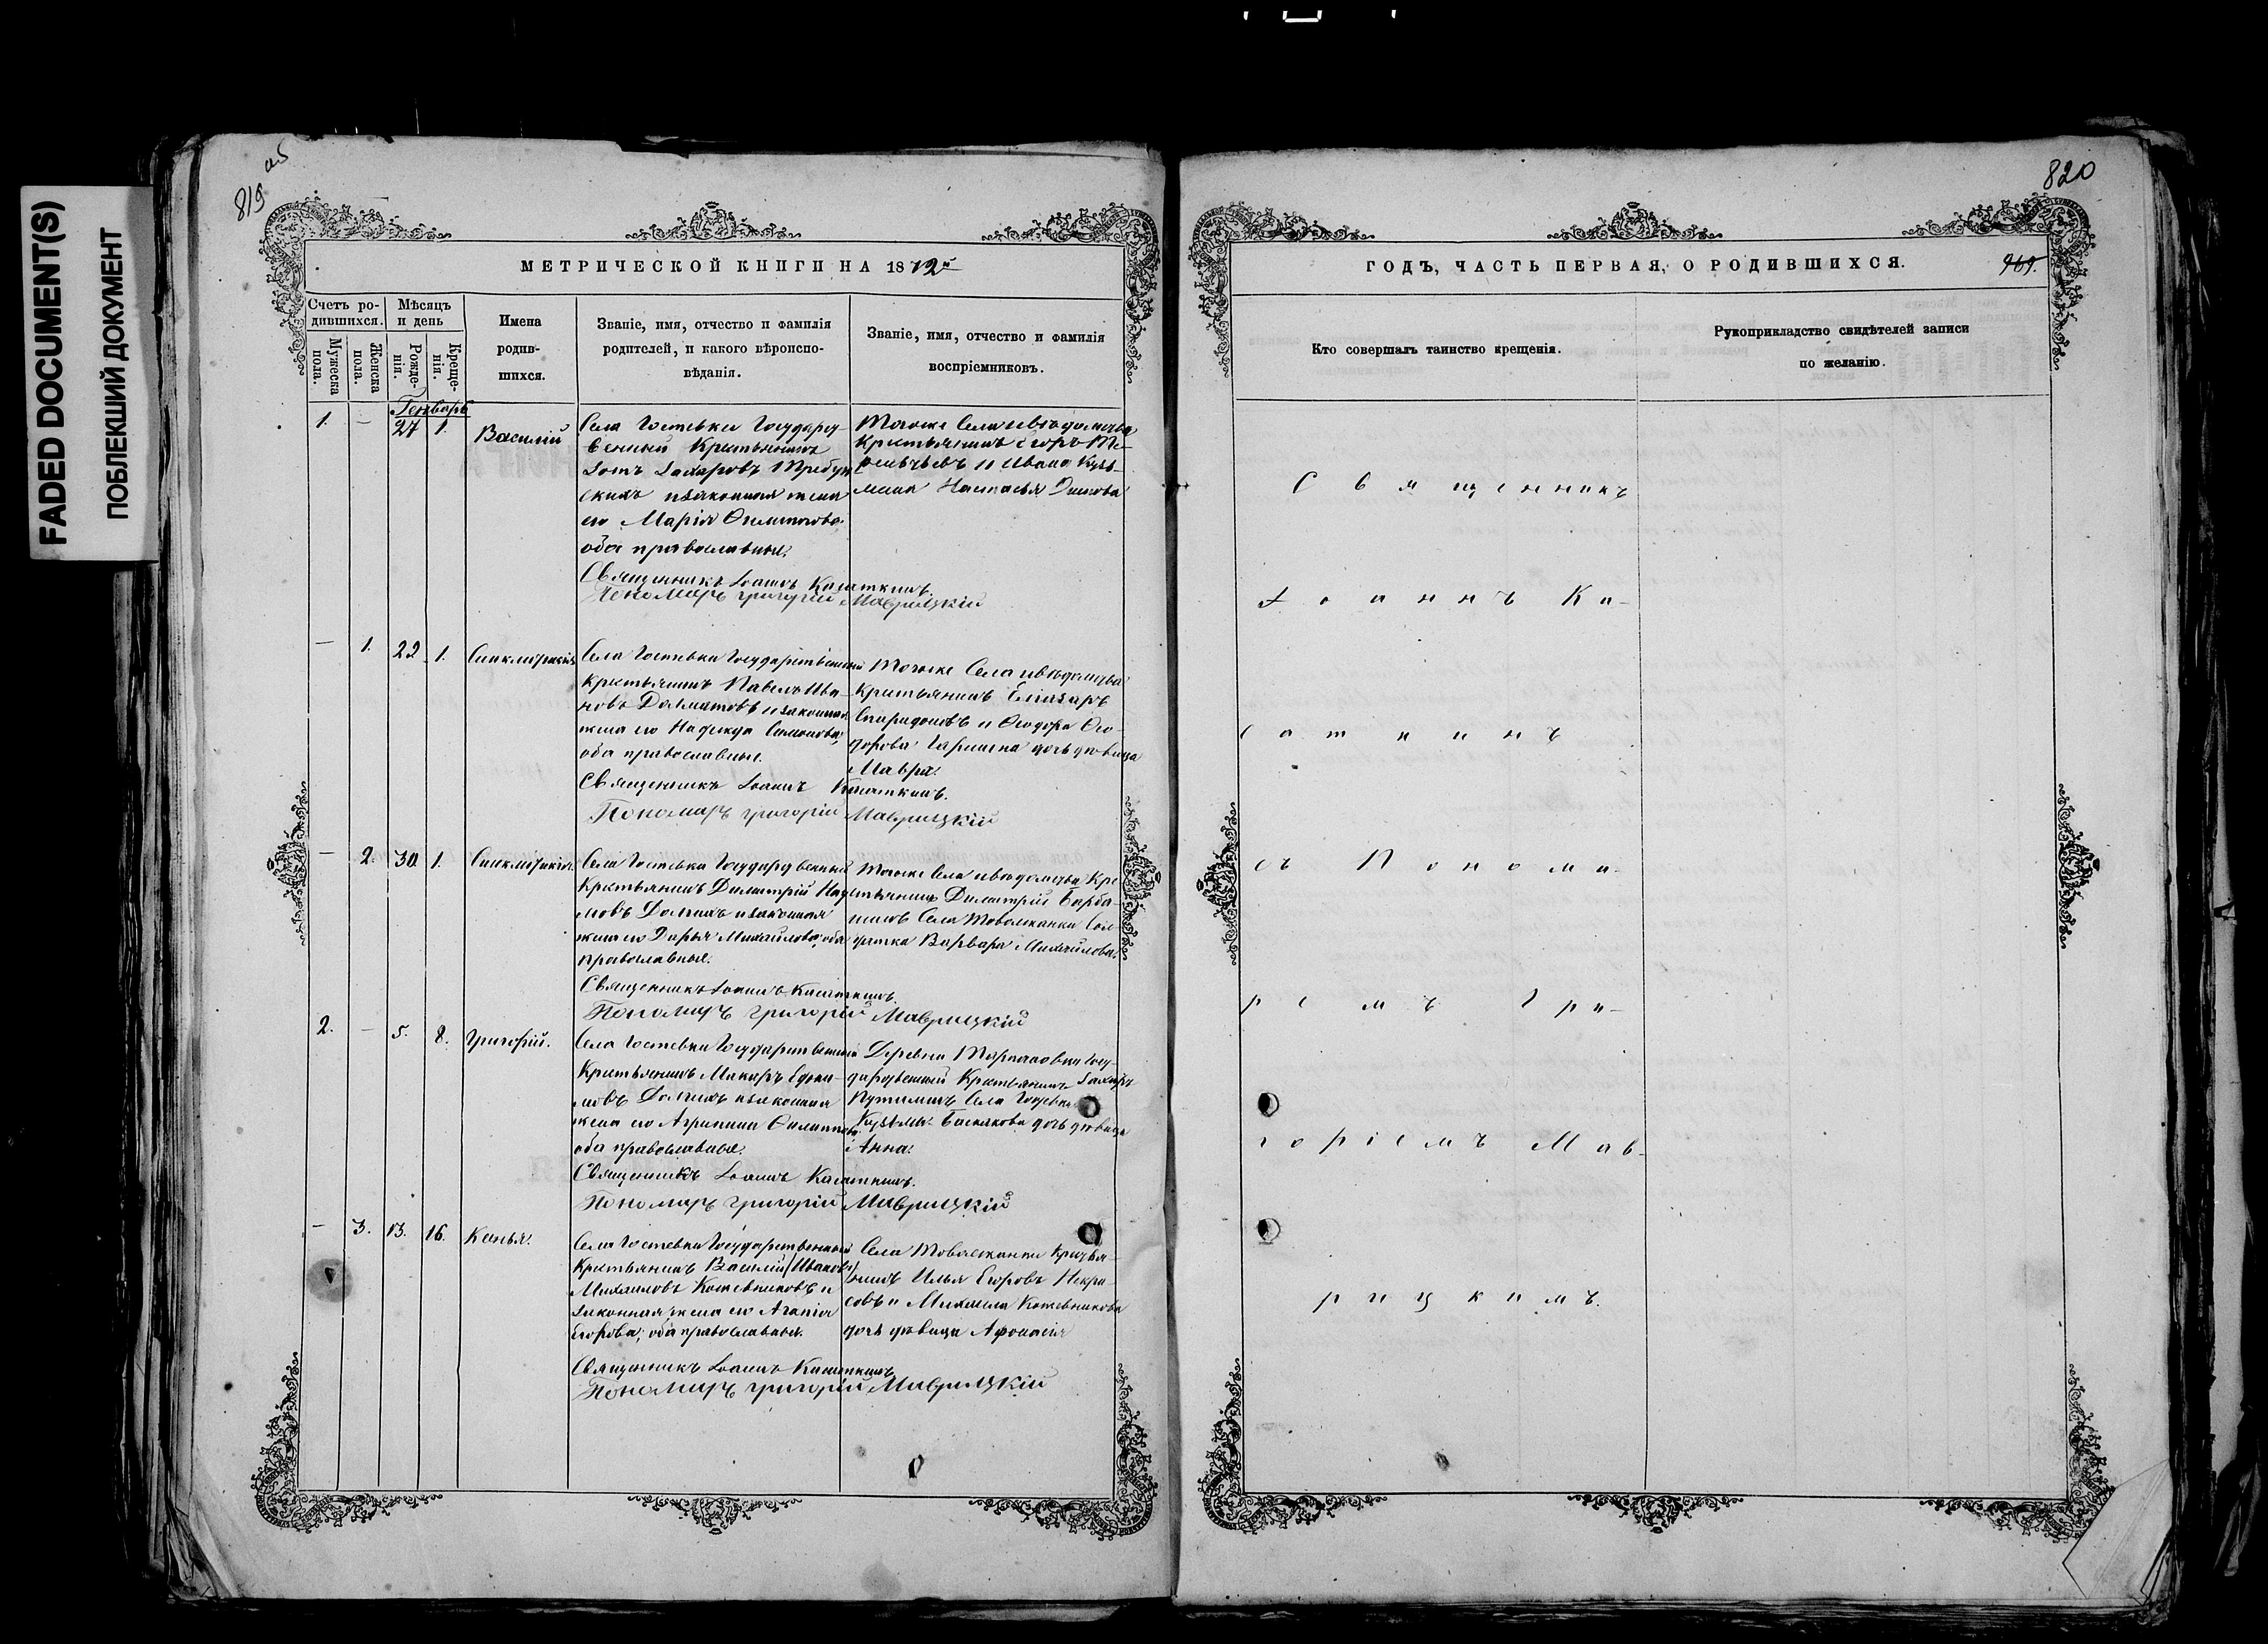 FADED DOCUMENT(S)
ПОБЛЕКШИЙ ДОКУМЕНТ
819 об
820
МЕТРИЧЕСКОЙ КНИГИ НА 1872й
Счетъ ро-
дившихся.
Мужеска
пола.
Женска
пола.
Мѣсяцъ
и день
Рожде-
нія.
Креще-
нія.
Имена
родив-
шихся.
Званіе, имя, отчество и фамилія
родителей, и какого вѣроиспо-
вѣданія.
Званіе, имя, отчество и фамилія
воспріемниковъ.
Генварь
1. — 27 1. Василій
Села Гостевки Государ
венный Крестьянинъ
Захаровъ
скихъ и законная жена
его Марія Филипова
оба православные.
Священникъ Іоаннъ Касаткинъ.
Пономарь Григорій Маврицкій
Тогоже Села и вѣдомства
Крестьянинъ Егоръ
и Ивана Кузь-
мина Настасья
— 1. 22 1. Синклитикія
Села Гостевки Государственный
крестьянинъ Павелъ Ива-
новъ Долматовъ и законная
жена его Надежда Симонова,
оба православные.
Священникъ Іоаннъ Касаткинъ.
Пономарь Григорій Маврицкій
Тогоже Села и вѣдомства
крестьянинъ Еліазаръ
Спиридоновъ и Ѳеодора Ѳео-
дорова дочь дѣвица
Мавра.
— 2. 30 1. Синклитикія.
Села Гостевки Государ венный
Крестьянинъ Димитрій Нау
мовъ Долгихъ и законная
жена его Дарья Михайлова, оба
православные.
Священникъ Іоаннъ Касаткинъ
Пономарь Григорій Маврицкій
Тогоже Села и вѣдомства Кре
стьянинъ Димитрій Барба-
шинъ Села Товолжанки Сол-
датка Варвара Михайлова.
2. — 5. 8. Григорій.
Села Гостевки Государственный
Крестьянинъ Макаръ Евдоки-
мовъ Долгихъ и законная
жена его Агрипина Филиппова
оба православные.
Священникъ Іоаннъ Касаткинъ.
Пономарь Григорій Маврицкій
Деревни Госу
дарственный Крестьянинъ Захаръ
Путилинъ Села Гостевки
Кузьмы дочь дѣвица
Анна.
— 3. 13. 16. Ксенья.
Села Гостевки Государственный
Крестьянинъ Василій (Ивановъ)
Михайловъ Кожевниковъ и
законная жена его Агапія
Егорова, оба православные.
Священникъ Іоаннъ Касаткинъ
Пономарь Григорій Маврицкій
Села Товолжанки Кресья-
нинъ Илья Егоровъ Некра-
совъ и Михаила Кожевникова
дочь дѣвица Афонасія
ГОДЪ, ЧАСТЬ ПЕРВАЯ, О РОДИВШИХСЯ.
969.
Кто совершалъ таинство крещенія.
Рукоприкладство свидѣтелей записи
по желанію.
Священникъ
Іоаннъ Ка-
саткинъ
съ Понома-
ремъ Гри-
горіемъ Мав-
рицкимъ.